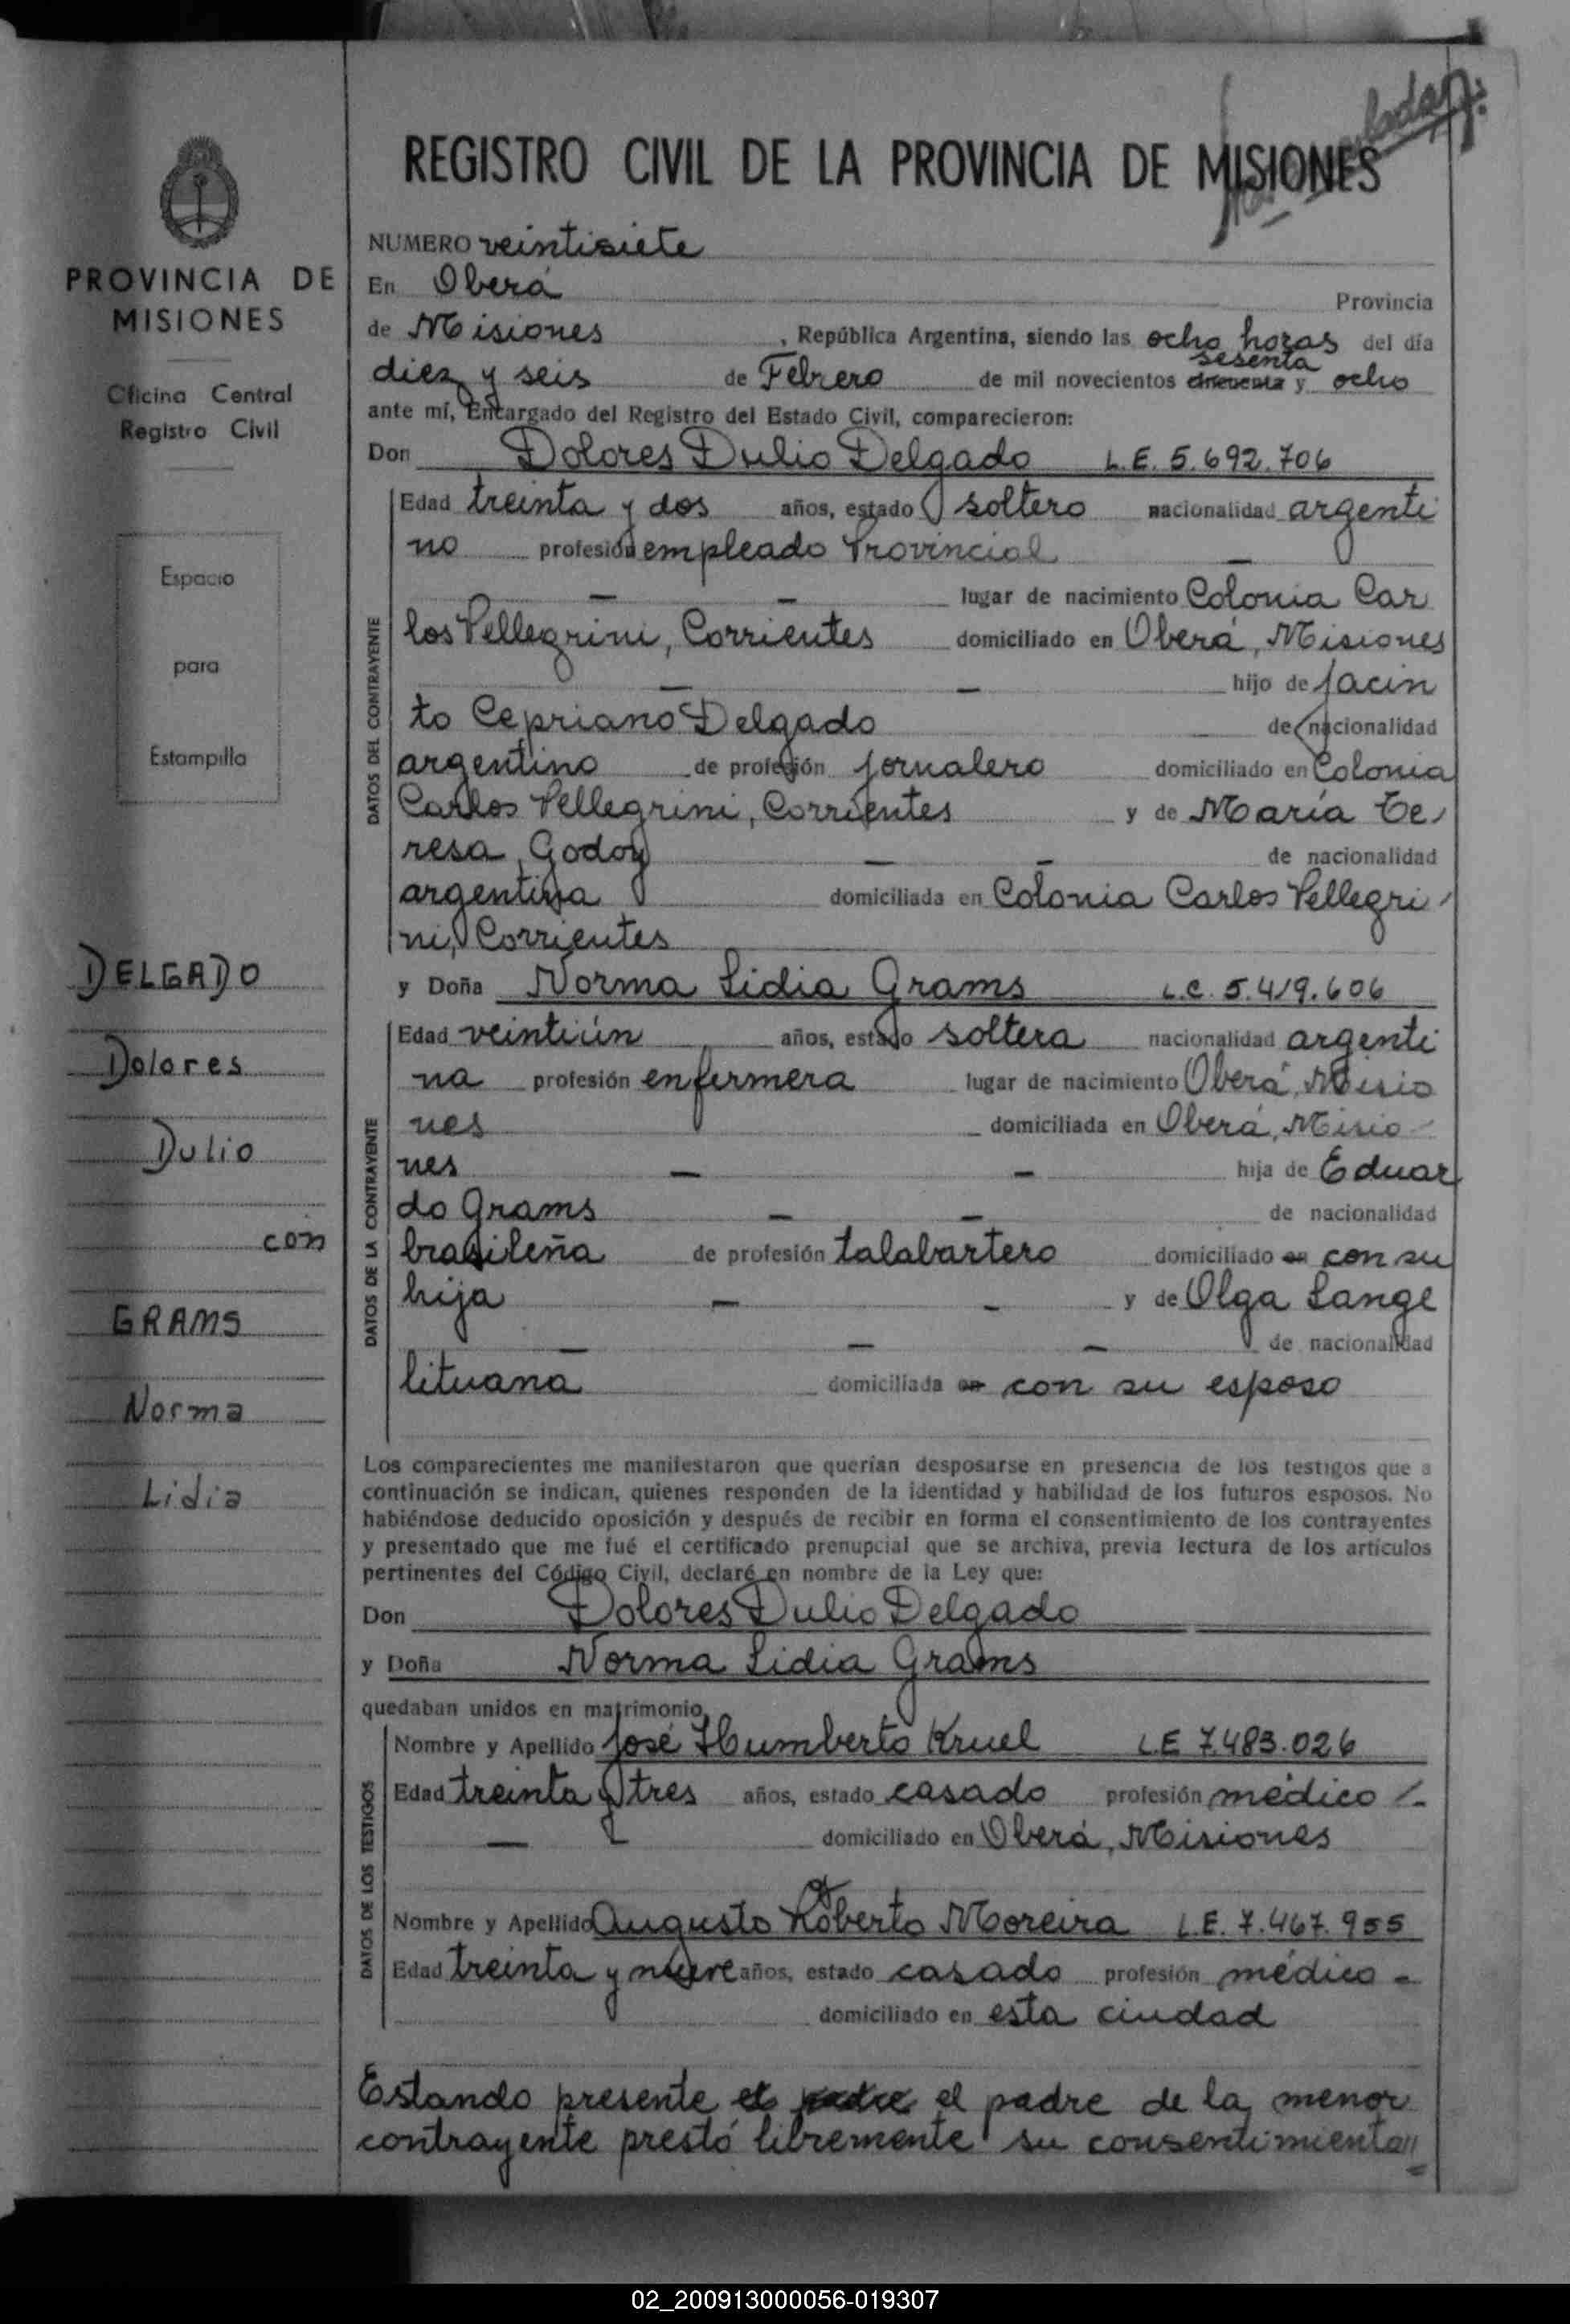 REGISTRO CIVIL DE LA PROVINCIA DE MISIONES
PROVINCIA DE
MISIONES
Oficina Central
Registro Civil
Espacio
para
Estampilla
DELGADO
Dolores
Dulio
con
GRAMS
Norma
Lidia
NUMERO veintisiete
En Oberá Provincia
de Misiones, República Argentina, siendo las ocho horas del día
sesenta
diez y seis de Febrero de mil novecientos cincuenta y ocho
ante mí, Encargado del Registro del Estado Civil, comparecieron:
Don Dolores Dulio Delgado L.E. 5.692.706
DATOS DEL CONTRAYENTE
Edad treinta y dos años, estado soltero nacionalidad argenti
no profesión empleado Provincial —
— — lugar de nacimiento Colonia Car
los Pellegrini, Corrientes domiciliado en Oberá, Misiones
— — hijo de Jacin
to Cepriano Delgado de nacionalidad
argentino de profesión jornalero domiciliado en Colonia
Carlos Pellegrini, Corrientes y de María Te
resa Godoy — — de nacionalidad
argentina domiciliada en Colonia Carlos Pellegri
ni, Corrientes
y Doña Norma Lidia Grams L.C. 5.419.606
DATOS DE LA CONTRAYENTE
Edad veintiún años, estado soltera nacionalidad argenti
na profesión enfermera lugar de nacimiento Oberá, Misio
nes domiciliada en Oberá, Misio
nes — — hija de Eduar
do Grams — — de nacionalidad
brasileña de profesión talabartero domiciliado en con su
hija — — y de Olga Lange
— — — de nacionalidad
lituana domiciliada en con su esposo
Los comparecientes me manifestaron que querían desposarse en presencia de los testigos que a
continuación se indican, quienes responden de la identidad y habilidad de los futuros esposos. No
habiéndose deducido oposición y después de recibir en forma el consentimiento de los contrayentes
y presentado que me fué el certificado prenupcial que se archiva, previa lectura de los artículos
pertinentes del Código Civil, declaré en nombre de la Ley que:
Don Dolores Dulio Delgado
y Doña Norma Lidia Grams
quedaban unidos en matrimonio
DATOS DE LOS TESTIGOS
Nombre y Apellido José Humberto Kruel L.E 7.483.026
Edad treinta y tres años, estado casado profesión médico
— domiciliado en Oberá, Misiones
Nombre y Apellido Augusto Roberto Moreira L.E. 7.467.955
Edad treinta y nueve años, estado casado profesión médico
domiciliado en esta ciudad
Estando presente el padre el padre de la menor
contrayente prestó libremente su consentimiento
02_200913000056-019307